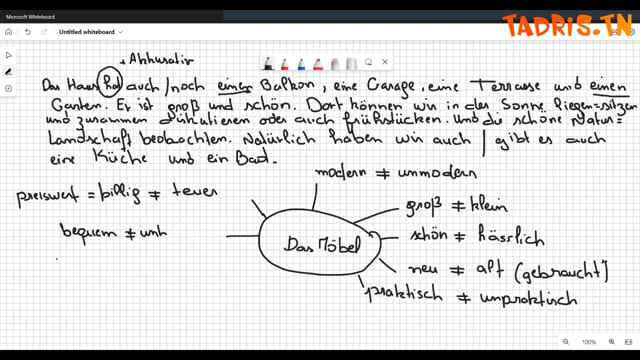 Microsoft Whiteboard
TADRIS.TN
Untitled whiteboard
+ Akkusativ
Das Haus hat auch / noch einen Balkon, eine Garage, eine Terrasse und einen
Garten. Er ist groß und schön. Dort können wir in der Sonne liegen = sitzen
und zusammen diskutieren oder auch frühstücken. und die schöne Natur =
Landschaft beobachten. Natürlich haben wir auch / gibt es auch
eine Küche und ein Bad.
modern ≠ unmodern
preiswert = billig ≠ teuer
groß ≠ klein
bequem ≠ unb
Das Möbel
schön ≠ hässlich
neu ≠ alt (gebraucht)
praktisch ≠ unpraktisch
100%